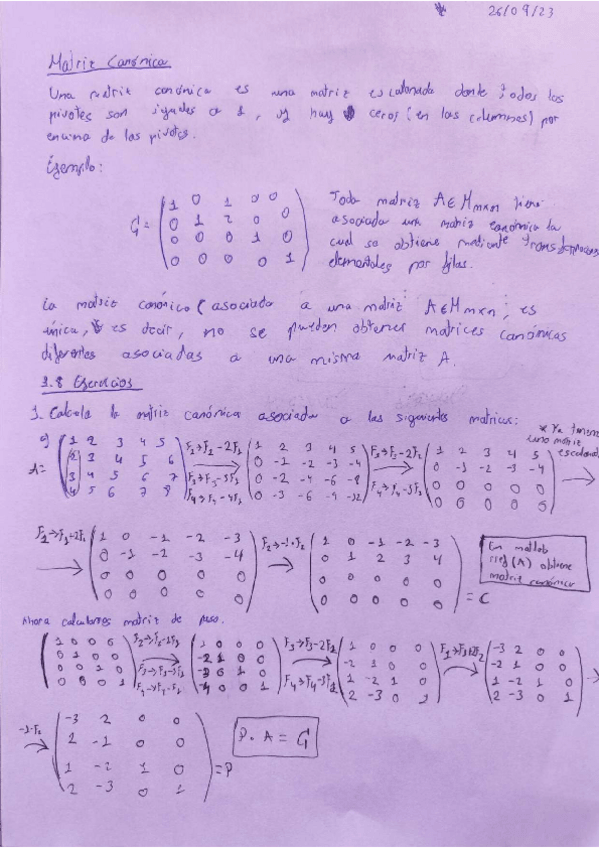 26/09/23
Matriz Canónica
Una matriz canónica es una matriz escalonada donde todos los
pivotes son iguales a 1, y hay ceros (en las columnas) por
encima de los pivotes.
Ejemplo:
G = ( 1 0 1 0 0
0 1 2 0 0
0 0 0 1 0
0 0 0 0 1 )
Toda matriz A∈Mmxn tiene
asociada una matriz canónica la
cual se obtiene mediante transformaciones
elementales por filas.
La matriz canónica (asociada a una matriz A∈Mmxn, es
única, es decir, no se pueden obtener matrices canónicas
diferentes asociadas a una misma matriz A.
3.8 Ejercicios
1. Calcula la matriz canónica asociada a las siguientes matrices:
* Ya tenemos
una matriz
escalonada
a) A = ( 1 2 3 4 5
2 3 4 5 6
3 4 5 6 7
4 5 6 7 8 )
F2→F2-2F1
F3→F3-3F1
F4→F4-4F1
( 1 2 3 4 5
0 -1 -2 -3 -4
0 -2 -4 -6 -8
0 -3 -6 -9 -12 )
F3→F3-2F2
F4→F4-3F2
( 1 2 3 4 5
0 -1 -2 -3 -4
0 0 0 0 0
0 0 0 0 0 )
F1→F1+2F2
( 1 0 -1 -2 -3
0 -1 -2 -3 -4
0 0 0 0 0
0 0 0 0 0 )
F2→-1·F2
( 1 0 -1 -2 -3
0 1 2 3 4
0 0 0 0 0
0 0 0 0 0 ) = C
En matlab
rref(A) obtiene
matriz canónica
Ahora calculamos matriz de paso.
( 1 0 0 0
0 1 0 0
0 0 1 0
0 0 0 1 )
( 1 0 0 0
-2 1 0 0
-3 0 1 0
-4 0 0 1 )
F3→F3-2F2
F4→F4-3F2
( 1 0 0 0
-2 1 0 0
1 -2 1 0
2 -3 0 1 )
F1→F1+2F2
( -3 2 0 0
-2 1 0 0
1 -2 1 0
2 -3 0 1 )
-1·F2
( -3 2 0 0
2 -1 0 0
1 -2 1 0
2 -3 0 1 ) = P
P · A = G